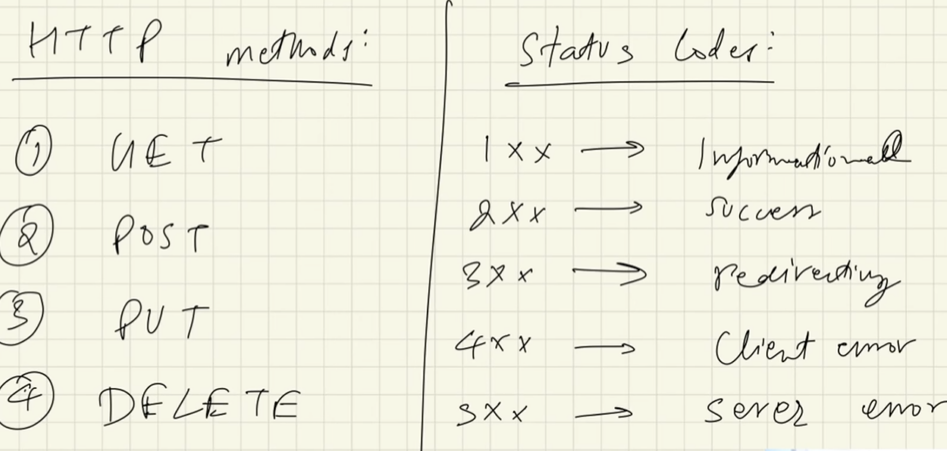 HTTP methods:
① GET
② POST
③ PUT
④ DELETE
Status Codes:
1xx → Informational
2xx → success
3xx → redirecting
4xx → Client error
5xx → Server error